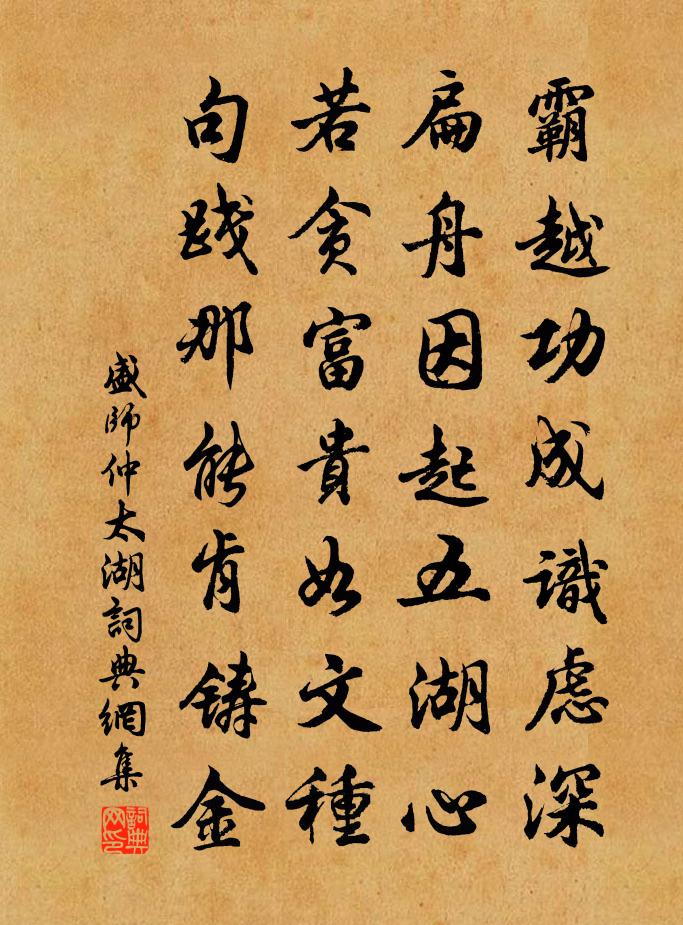 霸越功成識慮深
扁舟因起五湖心
若貪富貴如文種
句踐那能肯鋳金
盛師仲太湖詞典網集
詞典网印